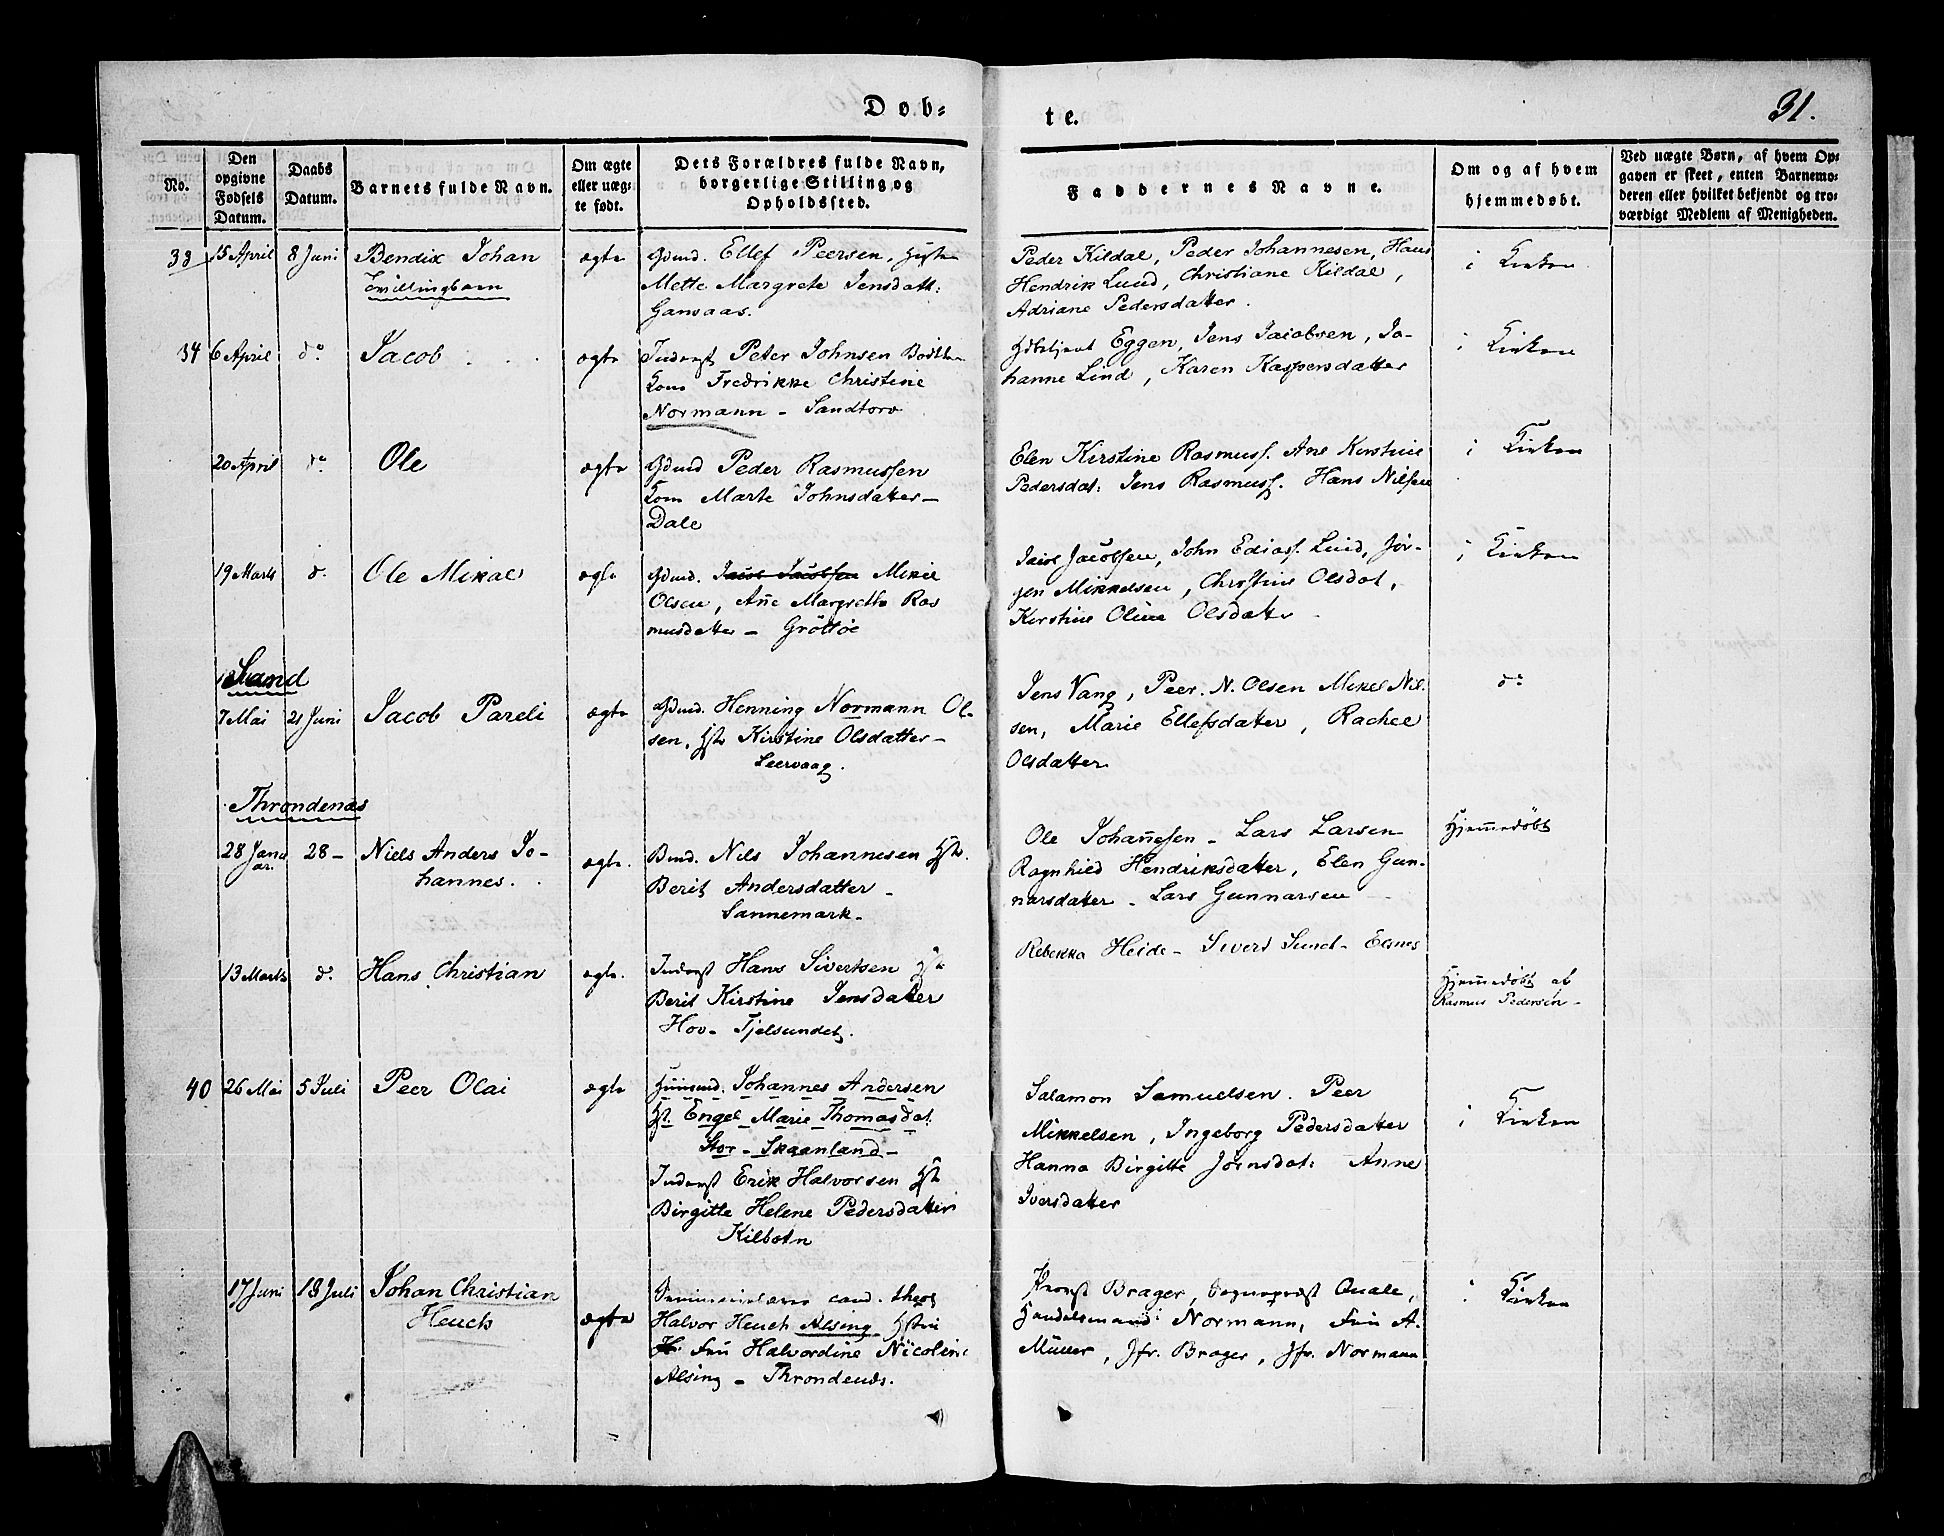 Døb=
te.
31.
No.
Den opgivne Fødsels Datum.
Daabs Datum.
Barnets fulde Navn.
Om ægte eller uægte født.
Dets Forældres fulde Navn, borgerlige Stilling og Opholdssted.
Faddernes Navne.
Om og af hvem hjemmedøbt.
Ved uægte Børn, af hvem Opgaven er skeet, enten Barnemoderen eller hvilket bekjendt og troværdigt Medlem af Menigheden.
33 15 April 8 Juni Bendix Johan ægte Gdmd. Ellef Peersen, Hustr Peder Kildal, Peder Johannesen, Hans i Kirken
Tvillingbarn Mette Margrete Jensdatt: Hendrik Lund, Christiane Kildal,
Gansaas. Adriane Pedersdatter.
34 6 April do Jacob ægte Inderst Peter Johnsen Eggen, Jens Jacobsen, Jo- i Kirken
Kone Fredrikke Christine hanne Lind, Karen Kaspersdatter
Normann - Sandtorv
20 April do Ole ægte Gdmd Peder Rasmussen Elen Kirstine Rasmuss. Ane Kirstine i Kirken
Kone Marte Johnsdatter - Pedersdat: Jens Rasmuss. Hans Nilsen
Dale
19 Marts do Ole Mikal ægte Gdmd. Jacob Jacobsen Mikal Jacob Jacobsen, John Edias. Lind, Jør- i Kirken
Olsen, Ane Margrethe Ras gen Mikkelsen, Christine Olsdat,
musdatter - Gröttöe Kirstine Oline Olsdatter
Sand
7 Mai 21 Juni Jacob Pareli ægte Gdmd. Henning Normann Ol- Jens Vang, Peer. N. Olsen Mikel Nil- do
sen, Hst Kirstine Olsdatter - sen, Marie Ellefsdatter, Rachel
Leervaag. Olsdatter
Throndenæs
28 Janu ar. 28 - Niels Anders Jo- ægte. Bmd. Nils Johannesen Hst. Ole Johanesen - Lars Larsen Hjemmedöbt
hannes. Berit Andersdatter - Ragnhild Hendriksdatter, Elen Gun-
Sannemark - narsdatter - Lars Gunnarsen
13 Marts do Hans Christian ægte. Inderst Hans Sivertsen Hst Rebekka Heide - Sivert Lund - Hjemmedöbt af
Berit Kirstine Jensdatter Rasmus Pedersen -
Hov - Tjelsundet.
40 26 Mai 5 Juli Peer Olai ægte Huusmd. Johannes Andersen Salamon Samuelsen. Peer i Kirken
Hst. Engel Marie Thomasdat. Mikkelsen, Ingeborg Pedersdatter
Stor - Skaanland - Hanna Birgitte Jörnsdat: Anne
Inderst Erik Halvorsen Hst Iversdatter
Birgitte Helene Pedersdatter
Kilbotn
17 Juni 18 Juli Johan Christian ægte Seminarielærer cand. theol Provst Brager, Sogneprest Quale, i Kirken
Heuch Halvor Heuch Alsing Hstru Handelsmand Normann, Fru A.
Fru Halvordine Nicoline Müller, Jfr. Brager, Jfr. Normann
Alsing - Throndenæs.